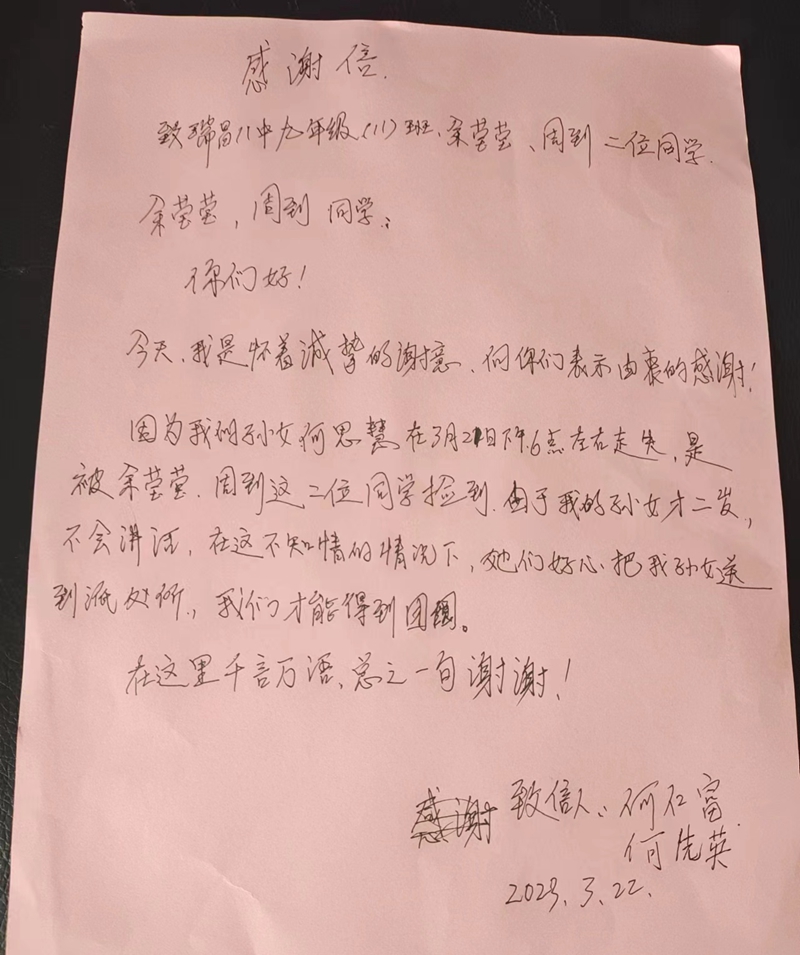 感谢信.
致瑞昌八中九年级(11)班、余莹莹、周到二位同学.
余莹莹,周到 同学:
你们好!
今天,我是怀着诚挚的谢意、向你们表示由衷的感谢!
因为我的孙女何思慧在3月21日下午6点左右走失,是
被余莹莹.周到这二位同学捡到.由于我的孙女才二岁,
不会讲话,在这不知情的情况下,她们好心把我孙女送
到派处所,我们才能得到团圆。
在这里千言万语、总之一句谢谢!
感谢 致信人:何仁富
何先英
2023.3.22.